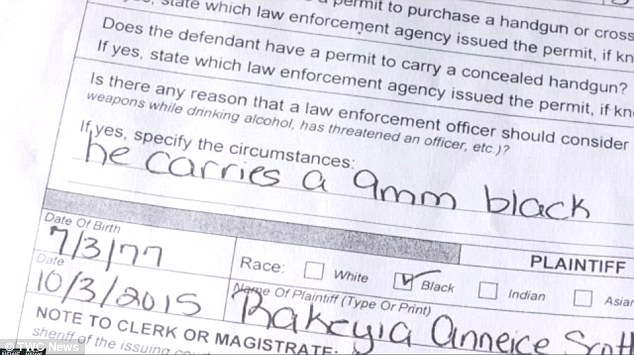 permit to purchase a handgun or cross
state which law enforcement agency issued the permit, if kn
Does the defendant have a permit to carry a concealed handgun?
If yes, state which law enforcement agency issued the permit, if kno
Is there any reason that a law enforcement officer should consider
weapons while drinking alcohol, has threatened an officer, etc.)?
If yes, specify the circumstances:
he carries a 9mm black
Date Of Birth
7/3/77
PLAINTIFF
Race: White Black Indian Asian
Date
10/3/2015
Name Of Plaintiff (Type Or Print)
Rakeyia Anneice Scott
NOTE TO CLERK OR MAGISTRATE:
sheriff of the issuing
© TWC News